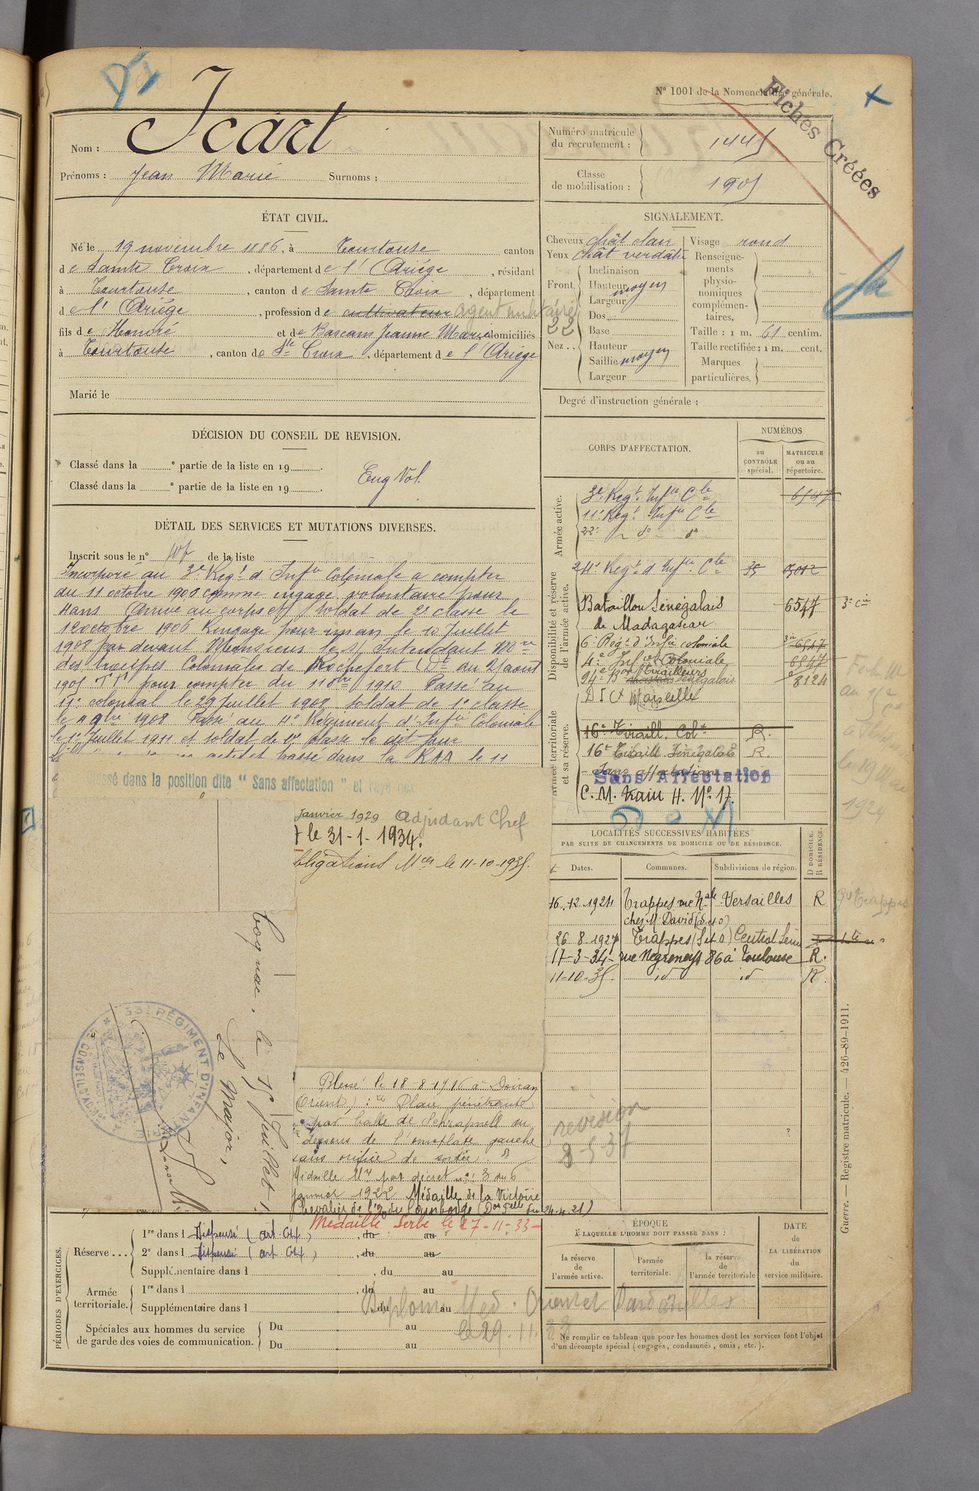 N° 1001 de la Nomenclature générale.
Fiches Créées
Nom : Icart
Prénoms : Jean Marie Surnoms :
Numéro matricule du recrutement : 1445
Classe de mobilisation : 1905
ÉTAT CIVIL.
Né le 19 novembre 1886, à Tourtouse canton
de Sainte Croix, département de l'Ariège, résidant
à Tourtouse, canton de Sainte Croix, département
de l'Ariège, profession de cultivateur agent militaire
fils de Honoré et de Bascans Jeanne Marie domiciliés
à Tourtouse, canton de Ste Croix, département de l'Ariège
Marié le
SIGNALEMENT.
Cheveux chât clair
Yeux chât verdât
Front
Inclinaison
Hauteur moyen
Largeur
Nez
Dos
Base
Hauteur
Saillie moyen
Largeur
Visage rond
Renseignements physionomiques complémentaires,
Taille : 1 m. 61 centim.
Taille rectifiée : 1 m. cent.
Marques particulières.
Degré d'instruction générale :
DÉCISION DU CONSEIL DE REVISION.
Classé dans la e partie de la liste en 19
Classé dans la e partie de la liste en 19
Eng Vol.
DÉTAIL DES SERVICES ET MUTATIONS DIVERSES.
Inscrit sous le n° de la liste
Incorporé au 3e Régt d'Infie Coloniale à compter
du 11 octobre 1906 comme engagé volontaire pour
4 ans. Arrivé au corps et soldat de 2e classe le
12 octobre 1906 Rengagé pour un an le 10 Juillet
1908 par devant Monsieur le S/ Intendant Mre
des troupes Coloniales de Rochefort
pour compter du 11 8bre 1910 Passé au
11e colonial le 29 juillet 1908, soldat de 1e classe
le 9bre 1908 Passé au 4e Régiment d'Infie Coloniale
le 1er Juillet 1911 et soldat de 2e classe le dit jour
passé dans la le 11
Classé dans la position dite "Sans affectation" et rayé
Janvier 1929 Adjudant Chef
le 31-1-1934.
obligations Mres le 11-10-1935.
Cognac, le Juillet 1
Le Major,
RÉGIMENT D'INFANTERIE
CONSEIL
Blessé le 18-8-1916 à Doiran
(Orient) : Plaie pénétrante
par balle de Schrapnell au
dessous de l'omoplate gauche
sans orifice de sortie.
Médaille Mre par décret du 6
Janvier 1922 Médaille de la Victoire
Médaille Serbe le 27-11-33
Diplôme Méd. Orient et Dardanelles
le 29.11.33
CORPS D'AFFECTATION.
NUMÉROS
au CONTRÔLE spécial.
MATRICULE ou au répertoire.
Armée active.
3e Régt Infie Cle 6547
11e Régt Infie Cle
22e d° d°
Disponibilité et réserve de l'armée active.
24e Régt d'Infie Cle 35
Bataillon Sénégalais 6547 3e Cie
de Madagascar
6e Régt d'Infie coloniale 6547
4e Infie Coloniale 6547
94e Bon Tirailleurs Sénégalais 8124
D I C X Marseille
Armée territoriale et sa réserve.
16e Tiraill. Col. R.
16e Tiraill. Sénégalais R
Sans affectation
Sans Affectation
C. M. Train H. No 17.
LOCALITÉS SUCCESSIVES HABITÉES
PAR SUITE DE CHANGEMENTS DE DOMICILE OU DE RÉSIDENCE.
Dates. Communes. Subdivisions de région. D DOMICILE. R RÉSIDENCE.
16.12.1924 Trappes rue Nale Versailles R
chez M. David (S et O)
26-8-1927 Trappes (S et O) Central Seine
17-3-34 rue Negreneys 86 à Toulouse R.
11-10-35 id id R.
revision
8-5-37
PÉRIODES D'EXERCICES.
Réserve
1re dans l Dispensé (art. ) du au
2e dans l Dispensé (art. ) du au
Supplémentaire dans l du au
Armée territoriale.
1re dans l du au
Supplémentaire dans l du au
Spéciales aux hommes du service de garde des voies de communication.
Du au
Du au
ÉPOQUE
À LAQUELLE L'HOMME DOIT PASSER DANS :
la réserve de l'armée active.
l'armée territoriale.
la réserve de l'armée territoriale
DATE DE LA LIBÉRATION du service militaire.
Ne remplir ce tableau que pour les hommes dont les services font l'objet
d'un décompte spécial (engagés, condamnés, omis, etc.).
Guerre. — Registre matricule. — 426-89-1911.